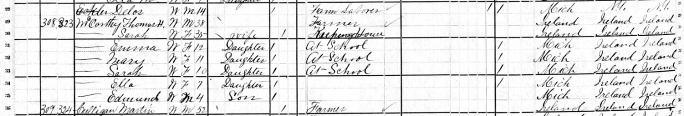 Delos W M 14 Farm Laborer 1 1 Mich N.Y. N.Y.
308 323 McCarthy Thomas H. W M 38 1 Farmer Ireland Ireland Ireland
— Sarah W F 35 wife 1 Keeping House Ireland Ireland Ireland
— Emma W F 12 Daughter 1 At School 1 Mich Ireland Ireland
— Mary W F 11 Daughter 1 At School 1 Mich Ireland Ireland
— Sarah W F 10 Daughter 1 At School 1 Mich Ireland Ireland
— Ella W F 7 Daughter 1 Mich Ireland Ireland
— Edmund W M 4 Son 1 Mich Ireland Ireland
309 324 Martin W M 52 1 Farmer Ireland Ireland Ireland